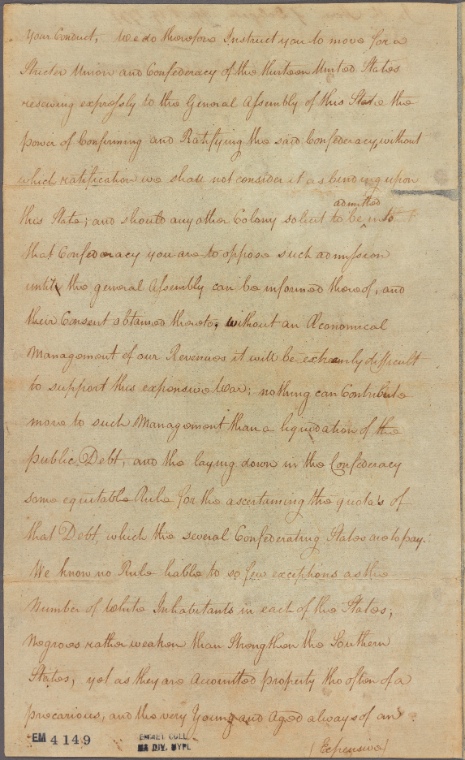 Your Conduct, we do therefore Instruct you to move for a
Stricter Union and Confederacy of the thirteen United States
reserving expressly to the General Assembly of this State the
power of Confirming and Ratifying the said Confederacy, without
which ratification we shall not consider it as binding upon
admitted
this State; and should any other Colony solicit to be ^ into
that Confederacy you are to oppose such admission
until the general Assembly can be informed thereof, and
their Consent obtained thereto, without an Œconomical
Management of our Revenues it will be extremly difficult
to support this expensive War; nothing can Contribute
more to such Management than a liquidation of the
public Debt, and the laying down in the Confederacy
some equitable Rule for the ascertaining the quota's of
that Debt which the several Confederating States are to pay.
We know no Rule liable to so few exceptions as the
Number of White Inhabitants in each of the States;
Negroes rather weaken than Strengthen the Southern
States, yet as they are Accounted property tho often of a
precarious, and the very Young and Aged always of an
(Expensive)
EM 4149
EMMET COLL.
MA DIV. NYPL